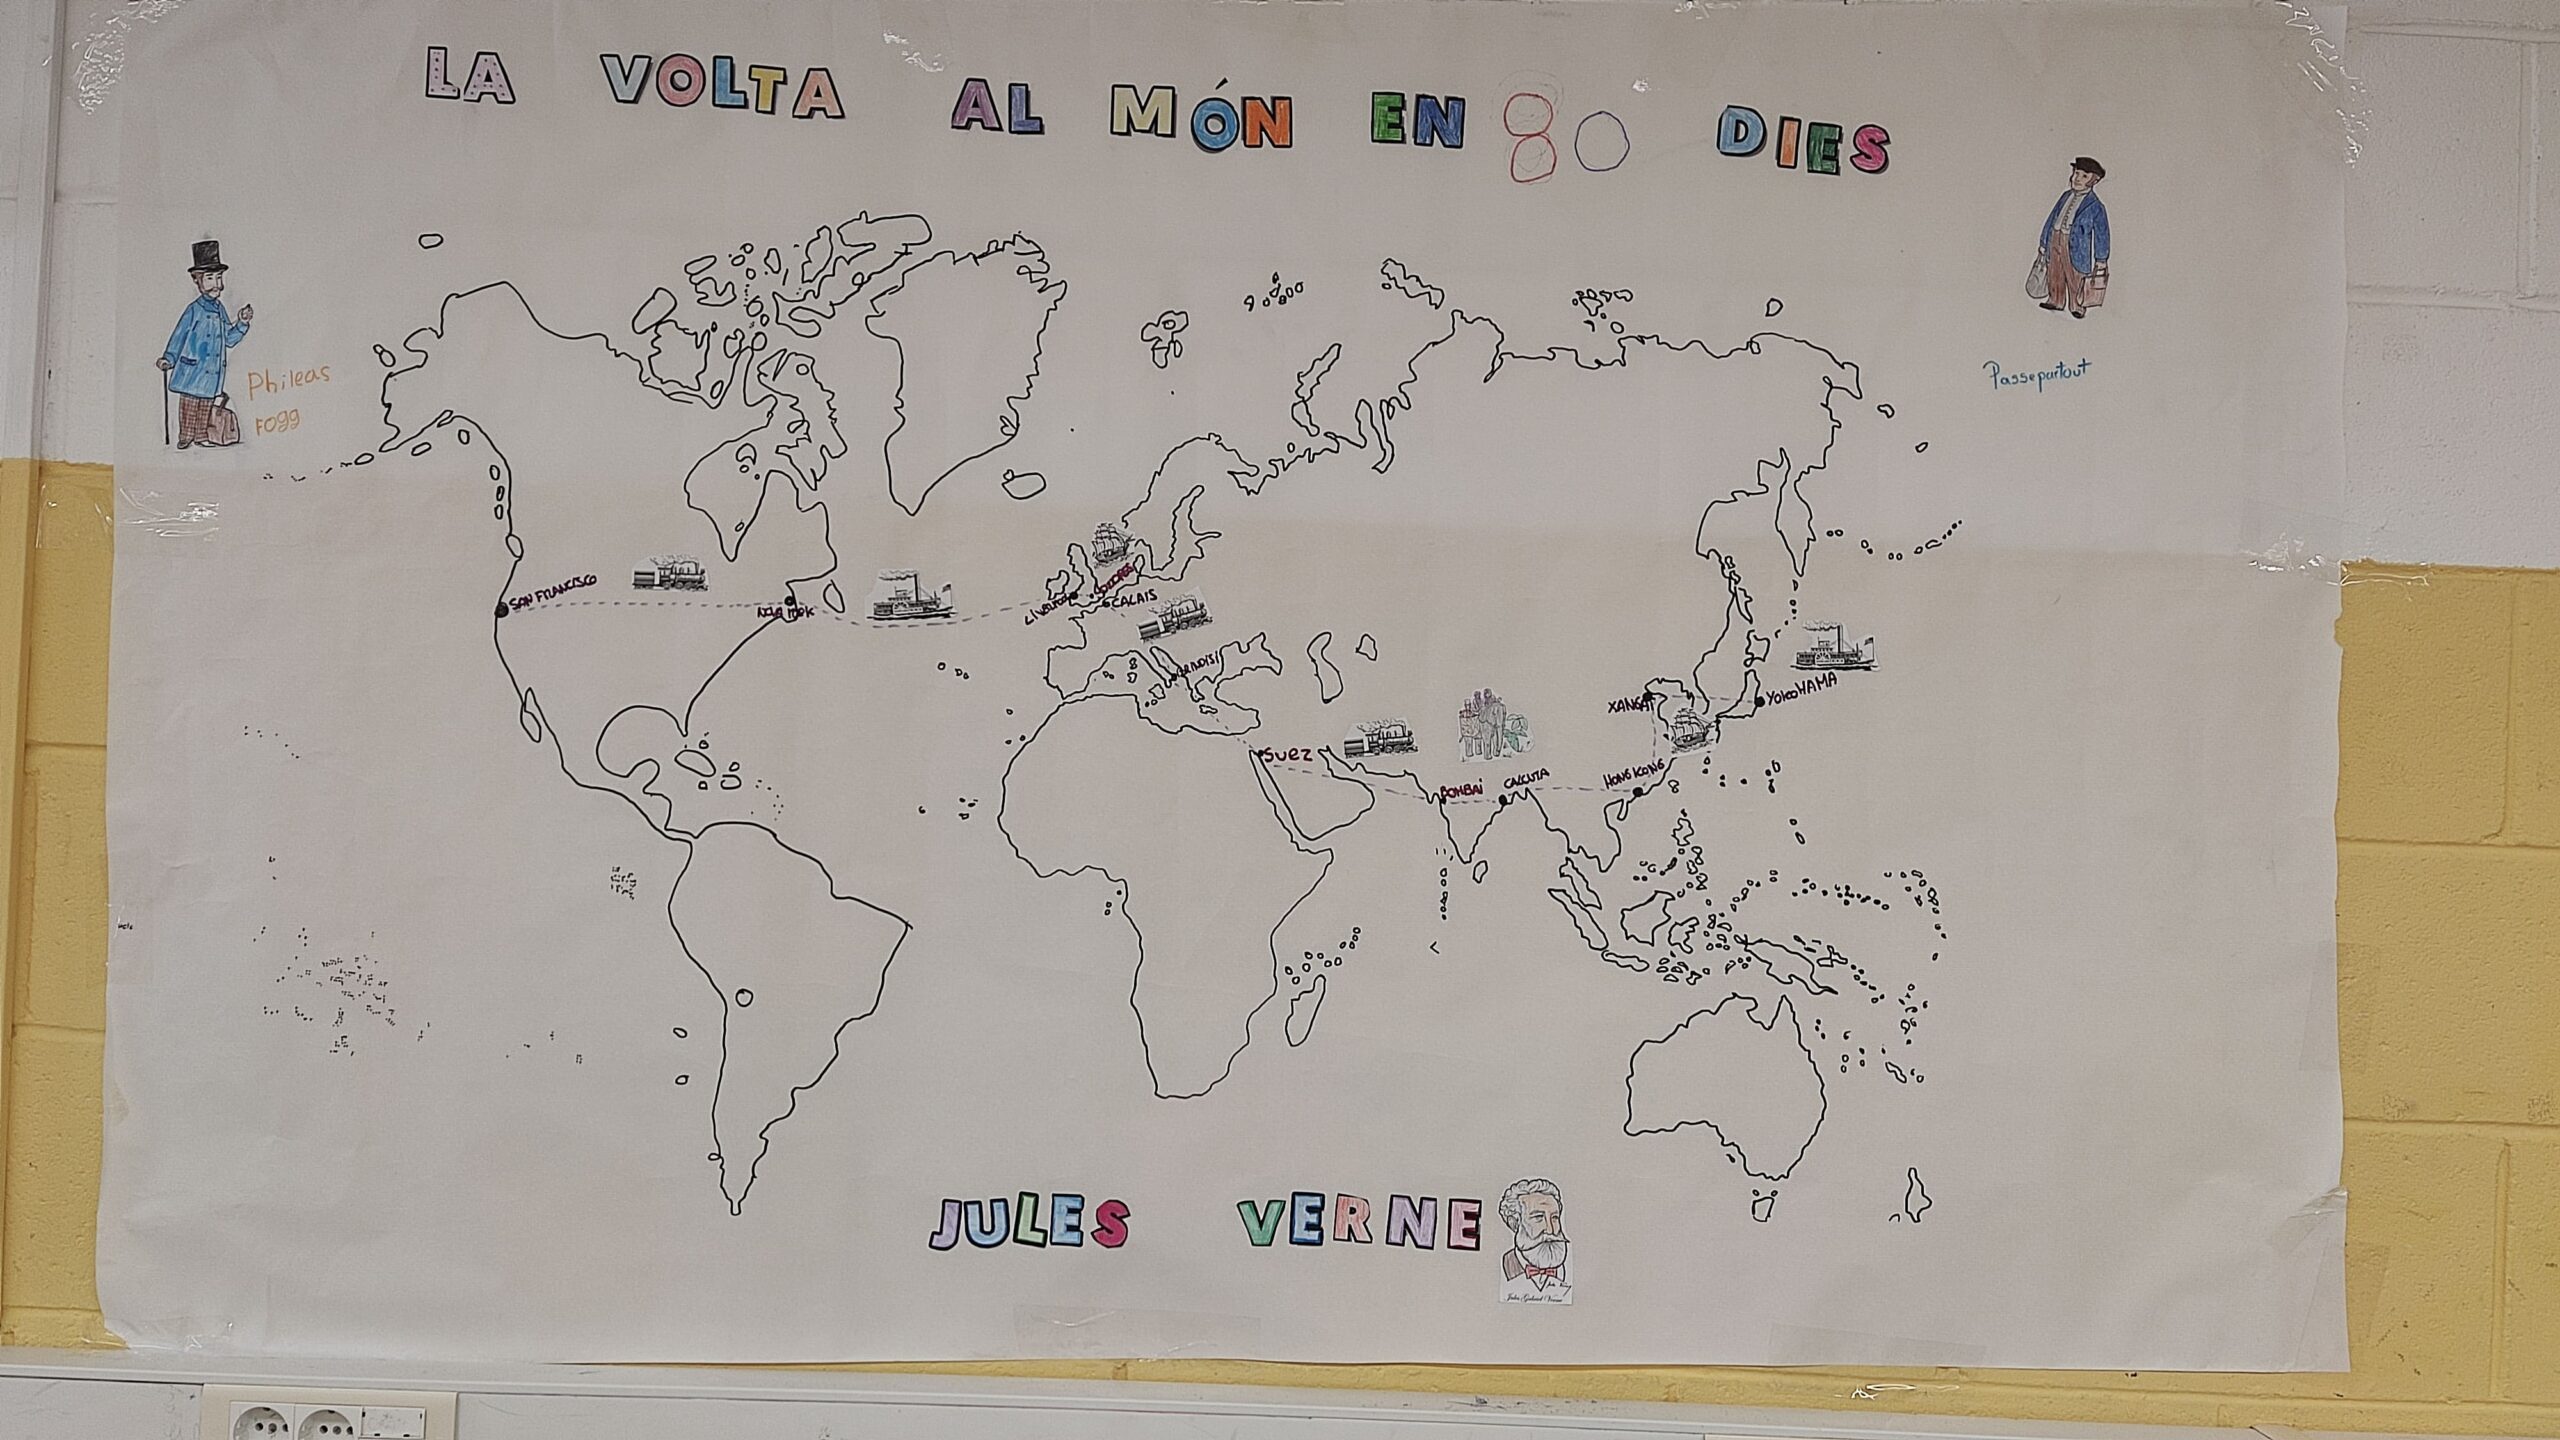 LA VOLTA AL MÓN EN 80 DIES
Phileas
FOGG
Passepartout
SAN FRANCISCO
LONDRES
CALAIS
BRINDISI
SUEZ
BOMBAI
CALCUTA
HONG KONG
XANGAI
YOKOHAMA
JULES VERNE
Jules Gabriel Verne